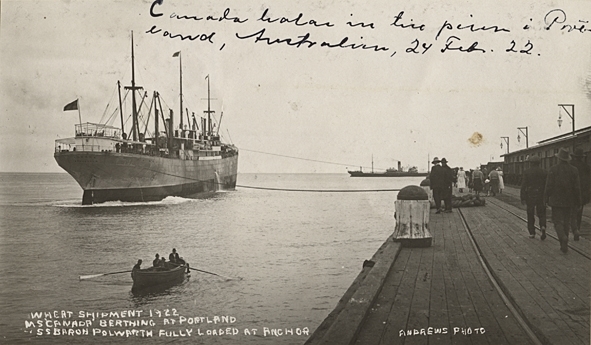 Canada halas in till piren i Port
land, Australien, 24 Feb. 22.
WHEAT SHIPMENT 1922
MS "CANADA" BERTHING AT PORTLAND
SS BARON POLWARTH FULLY LOADED AT ANCHOR
ANDREWS PHOTO